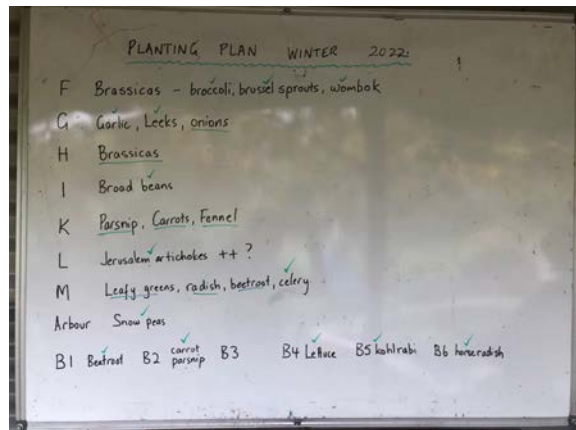 PLANTING PLAN WINTER 2022:
F Brassicas - broccoli, brussel sprouts, wombok
G Garlic, Leeks, onions
H Brassicas
I Broad beans
K Parsnip, Carrots, Fennel
L Jerusalem artichokes ++ ?
M Leafy greens, radish, beetroot, celery
Arbour Snow peas
B1 Beetroot B2 carrot parsnip B3 B4 Lettuce B5 kohlrabi B6 horseradish